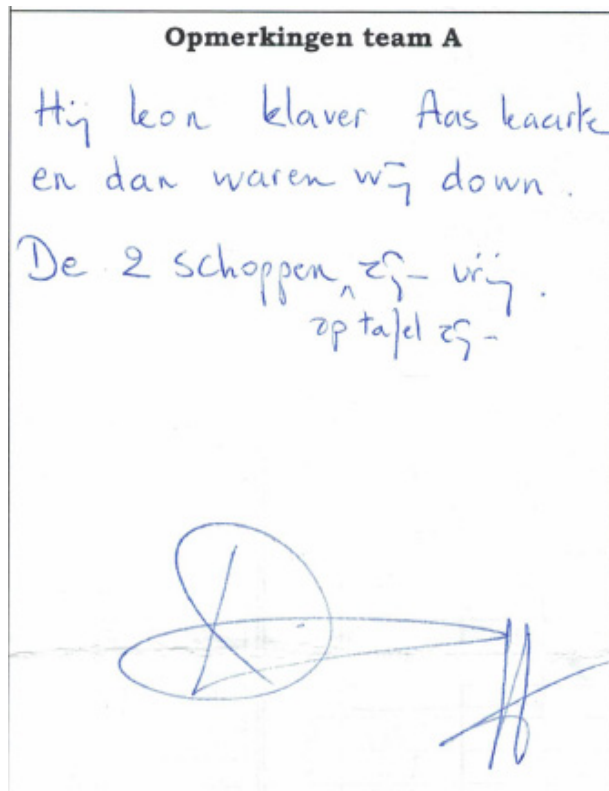 Opmerkingen team A
Hij kon klaver Aas kaarte
en dan waren wij down.
De 2 schoppen zijn vrij.
op tafel zijn